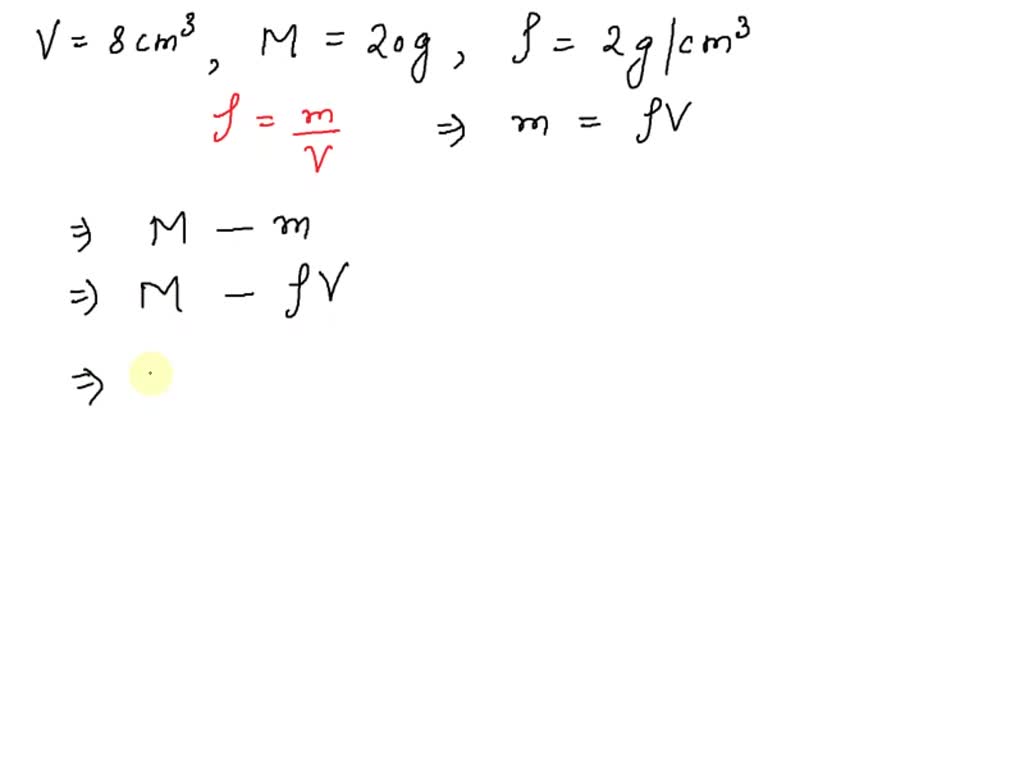 V = 8 cm³, M = 20g, ρ = 2g/cm³
ρ = m/V ⇒ m = ρV
⇒ M - m
⇒ M - ρV
⇒